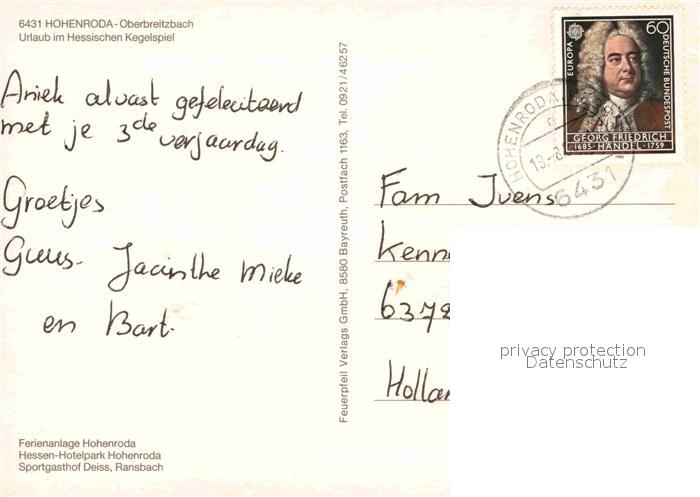 6431 HOHENRODA-Oberbreitzbach
Urlaub im Hessischen Kegelspiel
Aniek alvast gefeleciteerd
met je 3de verjaardag.
Groetjes
Guus. Jacinthe Mieke
en Bart.
Ferienanlage Hohenroda
Hessen-Hotelpark Hohenroda
Sportgasthof Deiss, Ransbach
Feuerpfeil Verlags GmbH, 8580 Bayreuth, Postfach 1163, Tel. 0921/46257
EUROPA
60
DEUTSCHE BUNDESPOST
GEORG FRIEDRICH
1685 · HÄNDEL · 1759
HOHENRODA
6431
Fam Juens
Kenn
6372
Hollan
privacy protection
Datenschutz